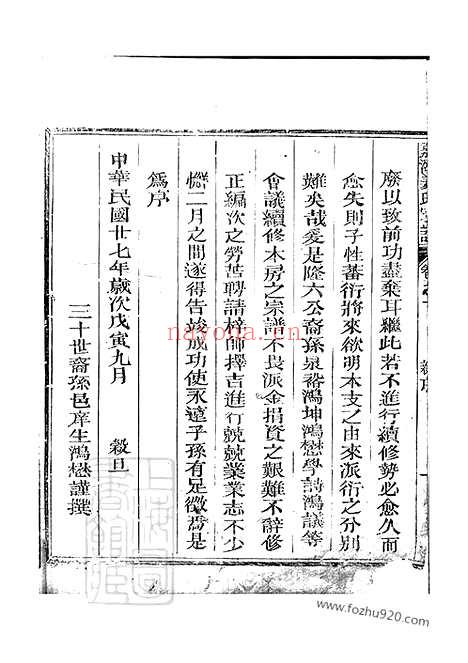 廢以致前功盡棄耳繼此若不進行續修勢必愈久而
愈失則子姓蕃衍將來欲明本支之由來派衍之分別
難矣哉爰是隆六公裔孫泉裕鴻坤鴻懋學詩鴻議等
會議續修本房之宗譜不畏派金捐資之艱難不辭修
正編次之勞苦聘請梓師擇吉進行兢兢業業志不少
懈二月之間遂得告竣成功使永遠子孫有足徵焉是
爲序
中華民國廿七年歲次戊寅九月 穀旦
三十世裔孫邑庠生鴻懋謹撰
nayona.cn
www.fozhu920.com